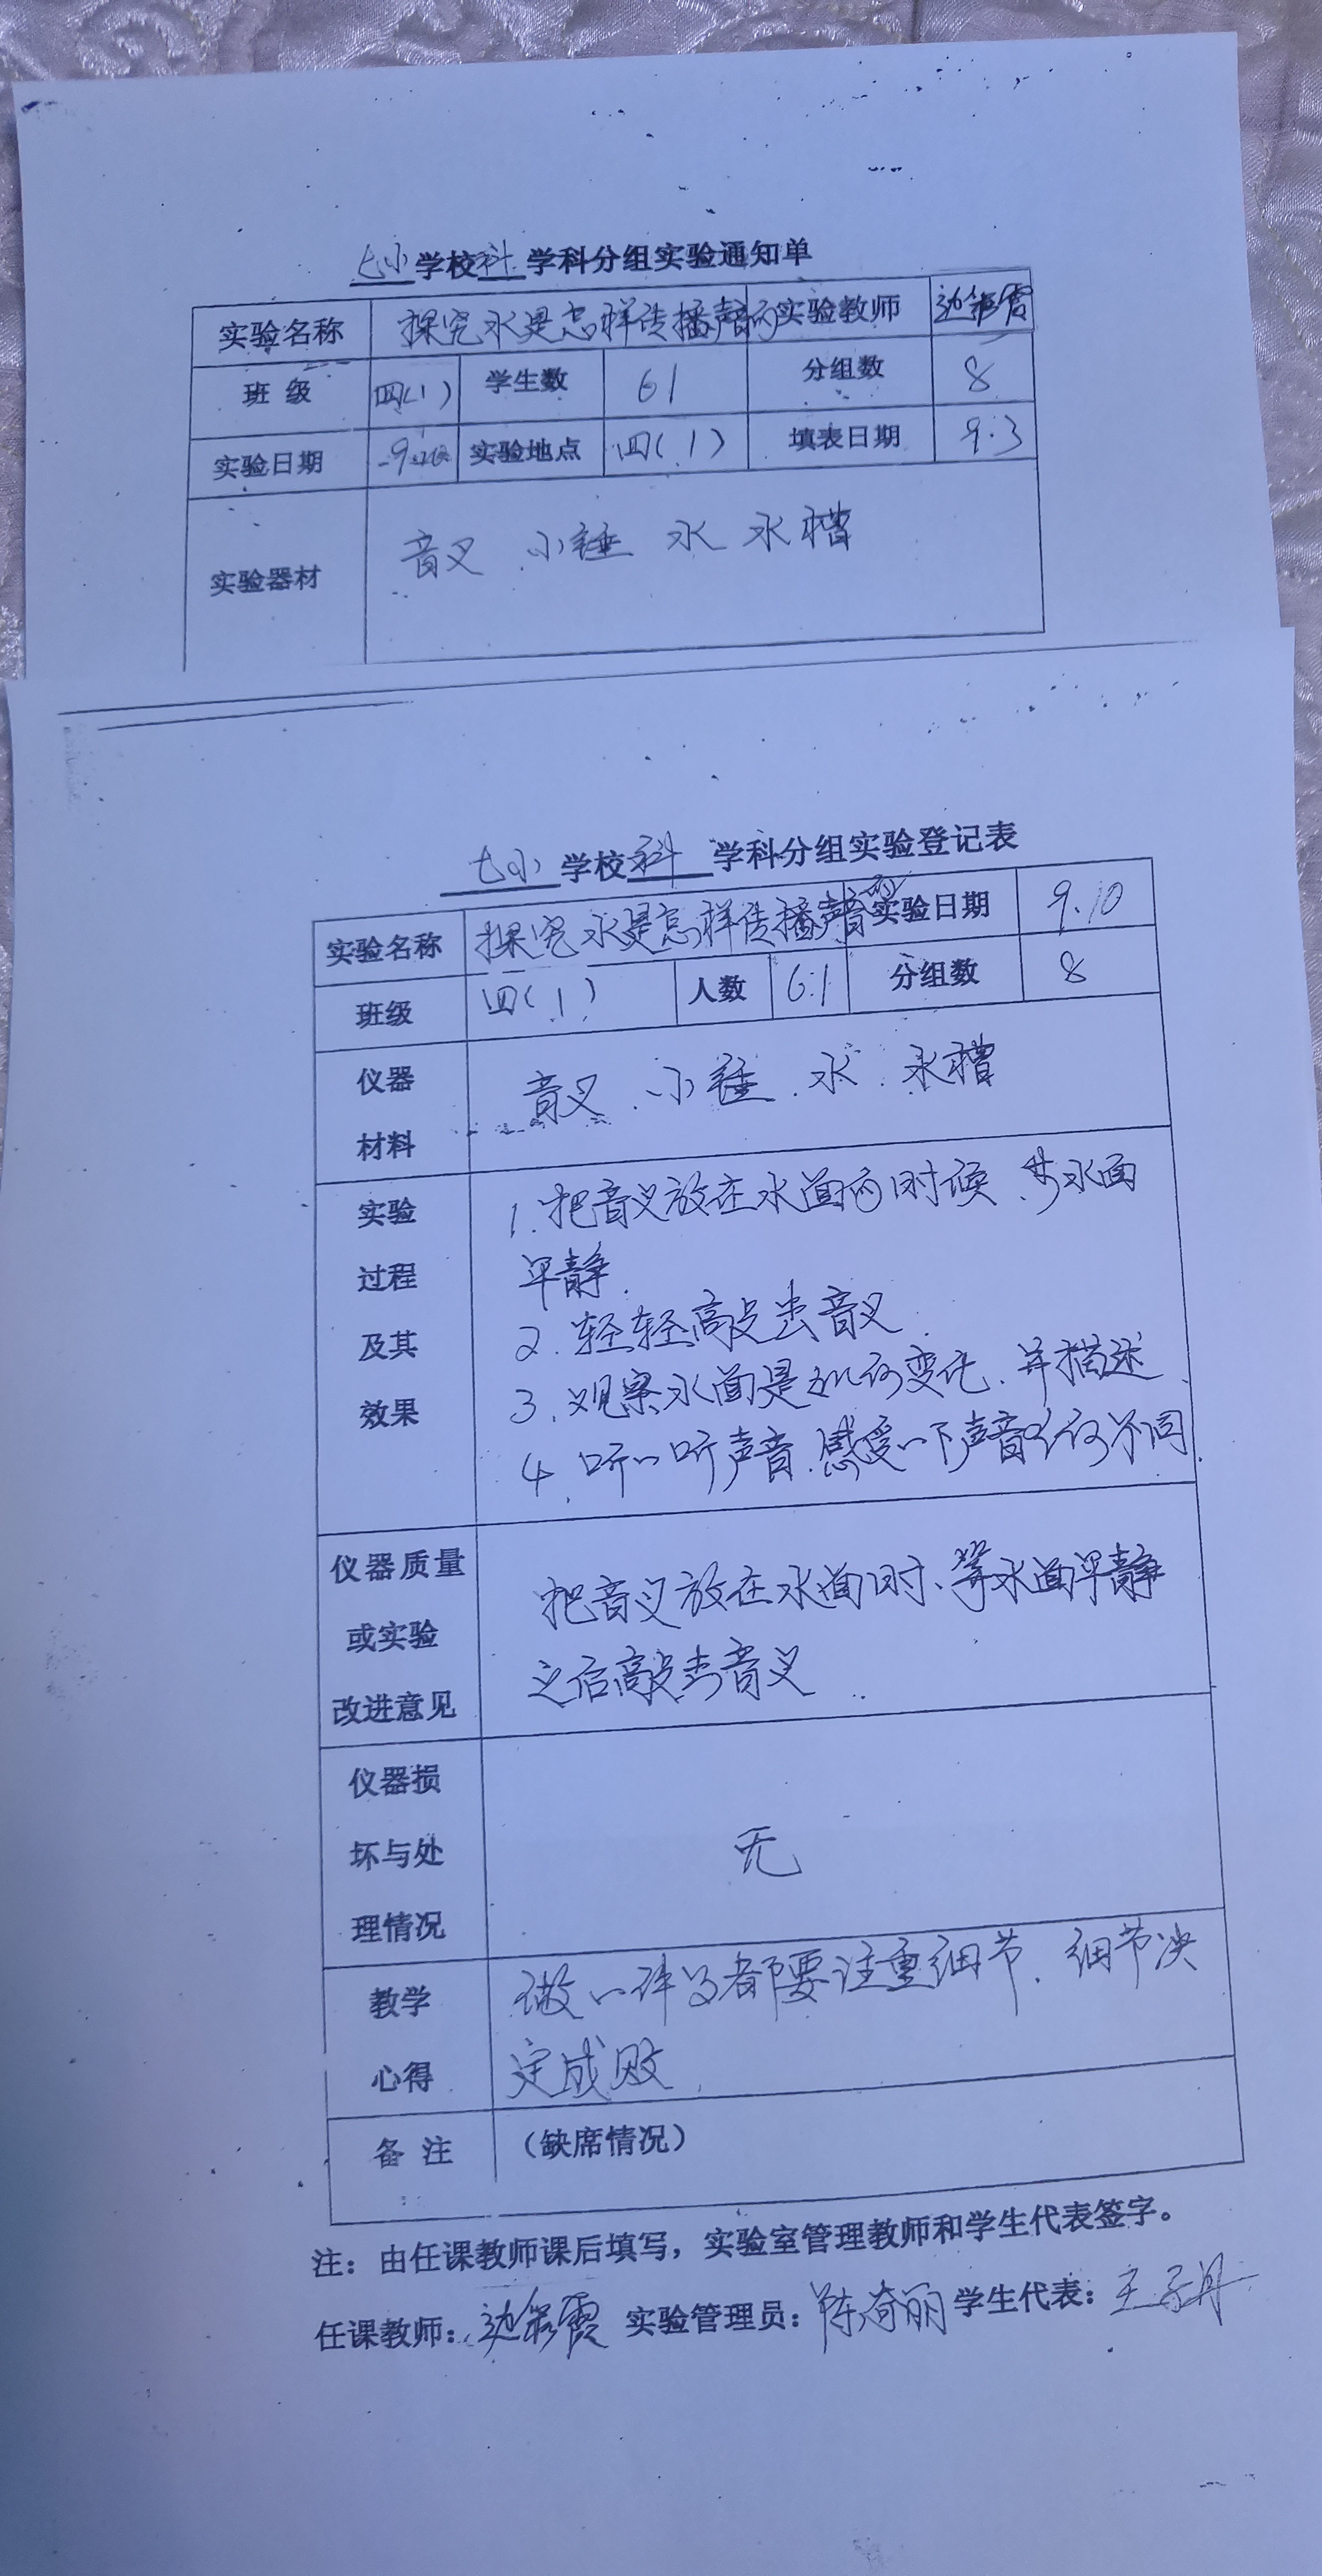 七小学校科学科分组实验通知单
实验名称 探究水是怎样传播声音的 实验教师 边彩霞
班 级 四(1) 学生数 61 分组数 8
实验日期 实验地点 四(1) 填表日期 9.3
实验器材 音叉 小锤 水 水槽
七小学校科学科分组实验登记表
实验名称 探究水是怎样传播声音的 实验日期 9.10
班级 四(1) 人数 61 分组数 8
仪器
材料
音叉、小锤、水、水槽
实验
过程
及其
效果
1.把音叉放在水面的时候、等水面
平静.
2.轻轻敲击音叉.
3、观察水面是如何变化、并描述、
4、听一听声音.感受一下声音有何不同
仪器质量
或实验
改进意见
把音叉放在水面时、等水面平静
之后敲击音叉.
仪器损
坏与处
理情况
无
教学
心得
做一件事都要注重细节、细节决
定成败.
备 注 (缺席情况)
注：由任课教师课后填写，实验室管理教师和学生代表签字。
任课教师：边彩霞 实验管理员：陈奇丽 学生代表：王子丹